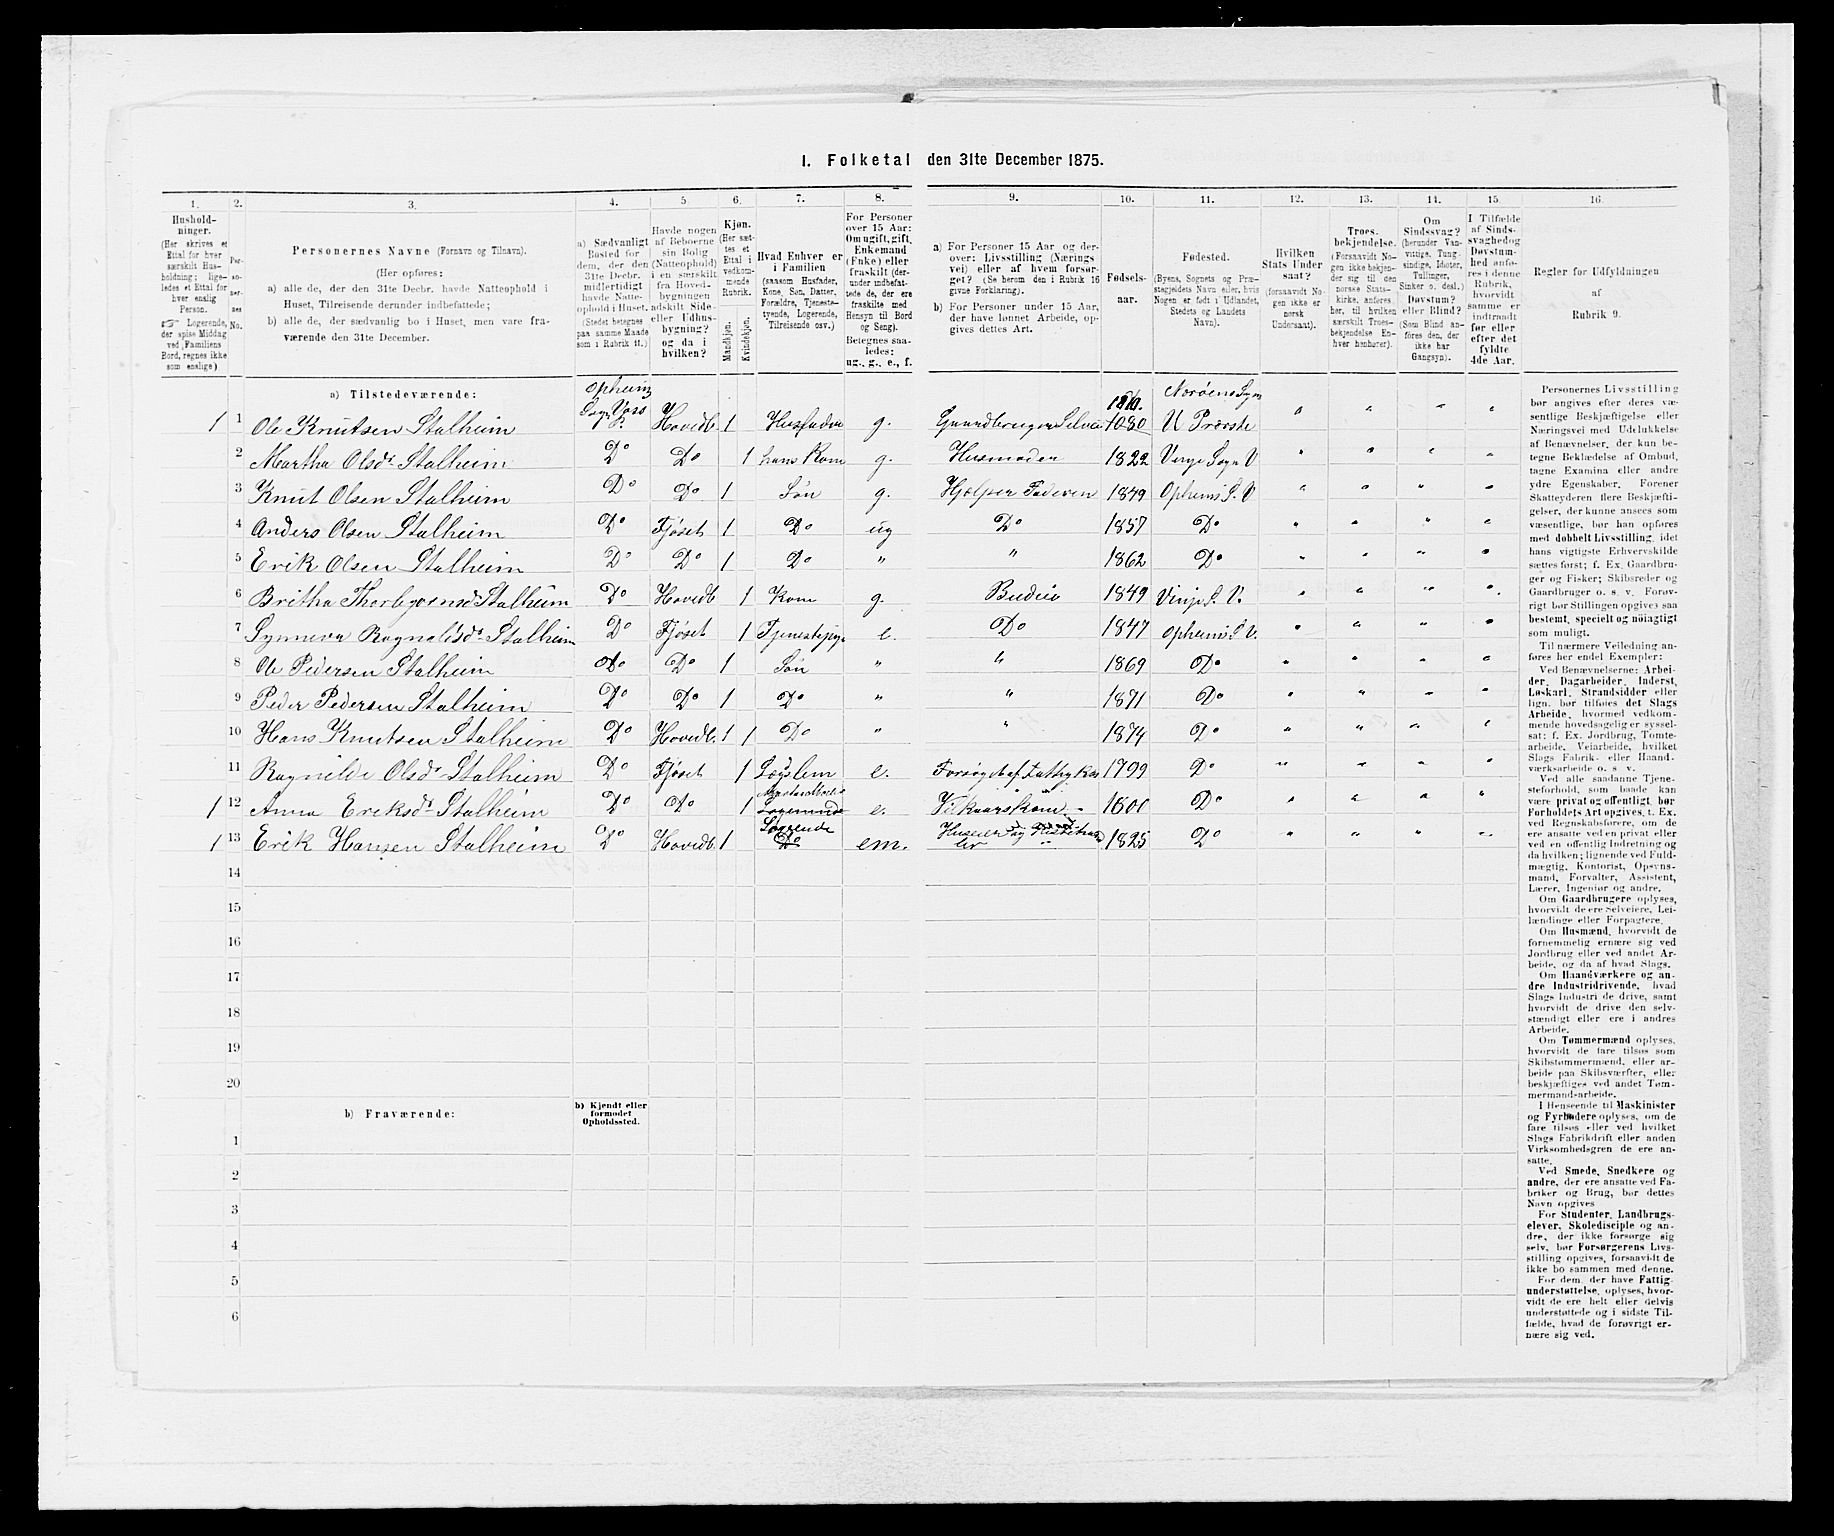 1. Folketal den 31te December 1875.
1. 2. 3. 4. 5 6. 7. 8. 9. 10. 11. 12. 13. 14. 15. 16.
Hushold-
ninger.
(Her skrives et
Ettal for hver
særskilt Hus-
holdning; lige-
ledes et Ettal for
hver enslig
Person.
Logerende,
der spise Middag
ved Familiens
Bord, regnes ikke
som enslige)
Per-
so-
ner-
nes
No.
Personernes Navne (Fornavn og Tilnavn).
(Her opføres:
a) alle de, der den 31te Decbr. havde Natteophold i
Huset, Tilreisende derunder indbefattede;
b) alle de, der sædvanlig bo i Huset, men vare fra-
værende den 31te December.
a) Sædvanligt
Bosted for
dem, der den
31te Decbr.
midlertidigt
havde Natte-
ophold i Huset.
(Stedet betegnes
paa samme Maade
som i Rubrik 11.)
Havde nogen
af Beboerne
sin Bolig
(Natteophold)
i en særskilt
fra Hoved-
bygningen
adskilt Side-
eller Udhus-
bygning?
og da i
hvilken?
Kjøn.
(Her sæt-
tes et
Ettal i
vedkom-
mende
Rubrik.
Mandkjøn.
Kvindekjøn.
Hvad Enhver er
i Familien
(saasom Husfader,
Kone, Søn, Datter,
Forældre, Tjeneste-
tyende, Logerende,
Tilreisende osv.)
For Personer
over 15 Aar:
Om ugift, gift,
Enkemand
(Enke) eller
fraskilt (der-
under indbefat-
tede de, der ere
fraskilte med
Hensyn til Bord
og Seng).
Betegnes saa-
ledes:
ug., g., e., f.
a) For Personer 15 Aar og der-
over: Livsstilling (Nærings
vei) eller af hvem forsør-
get? (Se herom den i Rubrik 16
givne Forklaring).
b) For Personer under 15 Aar,
der have lønnet Arbeide, op-
gives dettes Art.
Fødsels-
aar.
Fødested.
(Byens, Sognets og Præ-
stegjeldets Navn eller, hvis
Nogen er født i Udlandet,
Stedets og Landets
Navn).
Hvilken
Stats Under
saat?
(forsaavidt No-
gen ikke er
norsk
Undersaat).
Troes.
bekjendelse.
(Forsaavidt No-
gen ikke bekjen-
der sig til den
norske Stats-
kirke, anføres
her, til hvilken
særskilt Troes-
bekjendelse En-
hver henhører).
Om
Sindssvag?
(herunder Van-
vittige, Tung-
sindige, Idioter,
Tullinger,
Sinker o. desl.)
Døvstum?
eller Blind?
(Som Blind an-
føres den, der
ikke har
Gangsyn).
I Tilfælde
af Sinds-
svaghed og
Døvstum-
hed anfø-
res i denne
Rubrik,
hvorvidt
samme er
indtraadt
før eller
efter det
fyldte
4de Aar.
Regler for Udfyldningen
af
Rubrik 9.
a) Tilstedeværende:
Opheims
Sogn Voss P. 1810. Norøens Sogn
1 1 Ole Knutsen Stalheim Hovedb. 1 Husfader g. Gaardbruger Selveier U Præste
2 Martha Olsdr Stalheim Do Do 1 hans Kone g. Husmoder 1822 Vinje Sogn V
3 Knut Olsen Stalheim Do Do 1 Søn g. Hjælper Faderen 1849 Opheims S. V
4 Anders Olsen Stalheim Do Fjøset 1 Do ug Do 1857 Do
5 Erik Olsen Stalheim Do Do 1 Do " " 1862 Do
6 Britha Thorbjørnsd. Stalheim Do Hovedb 1 Kone g. Budeie 1849 Vinje S. V.
7 Synneva Ragnaldsdr Stalheim Do Fjøset 1 Tjenestepige e. Do 1847 Opheims S V.
8 Ole Pedersen Stalheim Do Do 1 Søn " " 1869 Do
9 Peder Pedersen Stalheim Do Do 1 Do " " 1871 Do
10 Hans Knutsen Stalheim Do Hovedb. 1 1 Do " " 1874 Do
11 Ragnilde Olsdr Stalheim Do Fjøset 1 Lægslem e. Forsørget af Fattigkas 1799 Do
1 12 Anna Eriksdr Stalheim Do Do 1 e. Vilkaarskone 1800 Do
Logerende
1 13 Erik Hansen Stalheim Do Hovedb. 1 Do em. Huseier og 1825 Do
14
15
16
17
18
19
20
b) Fraværende:
b) Kjendt eller
formodet
Opholdssted.
1
2
3
4
5
6
Personernes Livsstilling
bør angives efter deres væ-
sentlige Beskjæftigelse eller
Næringsvei med Udelukkelse
af Benævnelser, der kun be-
tegne Beklædelse af Ombud,
tagne Examina eller andre
ydre Egenskaber. Forener
Skatteyderen flere Beskjæfti-
gelser, der kunne ansees som
væsentlige, bør han opføres
med dobbelt Livsstilling, idet
hans vigtigste Erhvervskilde
sættes først; f. Ex. Gaardbru-
ger og Fisker; Skibsreder og
Gaardbruger o. s. v. Forøv-
rigt bør Stillingen opgives saa
bestemt, specielt og nøiagtigt
som muligt.
Til nærmere Veiledning an-
føres her endel Exempler:
Ved Benævnelserne: Arbei-
der, Dagarbeider, Inderst,
Løskarl, Strandsidder eller
lign. bør tilføies det Slags
Arbeide, hvormed vedkom-
mende hovedsagelig er syssel-
sat: f. Ex. Jordbrug, Tomte-
arbeide, Veiarbeide, hvilket
Slags Fabrik- eller Haand-
værksarbeide o. s. v.
Ved alle saadanne Tjene-
steforhold, som baade kan
være privat og offentligt, bør
Forholdets Art opgives, t. Ex.
ved Regnskabsførere, om de
ere ansatte ved en privat eller
ved en offentlig Indretning og
da hvilken; lignende ved Fuld-
mægtig, Kontorist, Opsyns-
mand, Forvalter, Assistent,
Lærer, Ingeniør og andre.
Om Gaardbrugere oplyses,
hvorvidt de ere Selveiere, Lei-
lændinge eller Forpagtere.
Om Husmænd, hvorvidt de
fornemmelig ernære sig ved
Jordbrug eller ved andet Ar-
beide, og da af hvad Slags.
Om Haandværkere og an-
dre Industridrivende, hvad
Slags Industri de drive, samt
hvorvidt de drive den selv-
stændigt eller ere i andres
Arbeide.
Om Tømmermænd oplyses,
hvorvidt de fare tilsøs som
Skibstømmermænd, eller ar-
beide paa Skibsværfter, eller
beskjæftiges ved andet Tøm-
mermand-arbeide.
I Henseende til Maskinister
og Fyrbødere oplyses, om de
fare tilsøs eller ved hvilket
Slags Fabrikdrift eller anden
Virksomhedsgren de ere an-
satte.
Ved Smede, Snedkere og
andre, der ere ansatte ved Fa-
briker og Brug, bør dettes
Navn opgives
For Studenter, Landbrugs-
elever, Skoledisciple og an-
dre, der ikke forsørge sig
selv, bør Forsørgerens Livs-
stilling opgives, forsaavidt de
ikke bo sammen med denne.
For dem, der have Fattig-
understøttelse, oplyses, hvor-
vidt de ere helt eller delvis
understøttede og i sidste Til-
fælde, hvad de forøvrigt er-
nære sig ved.